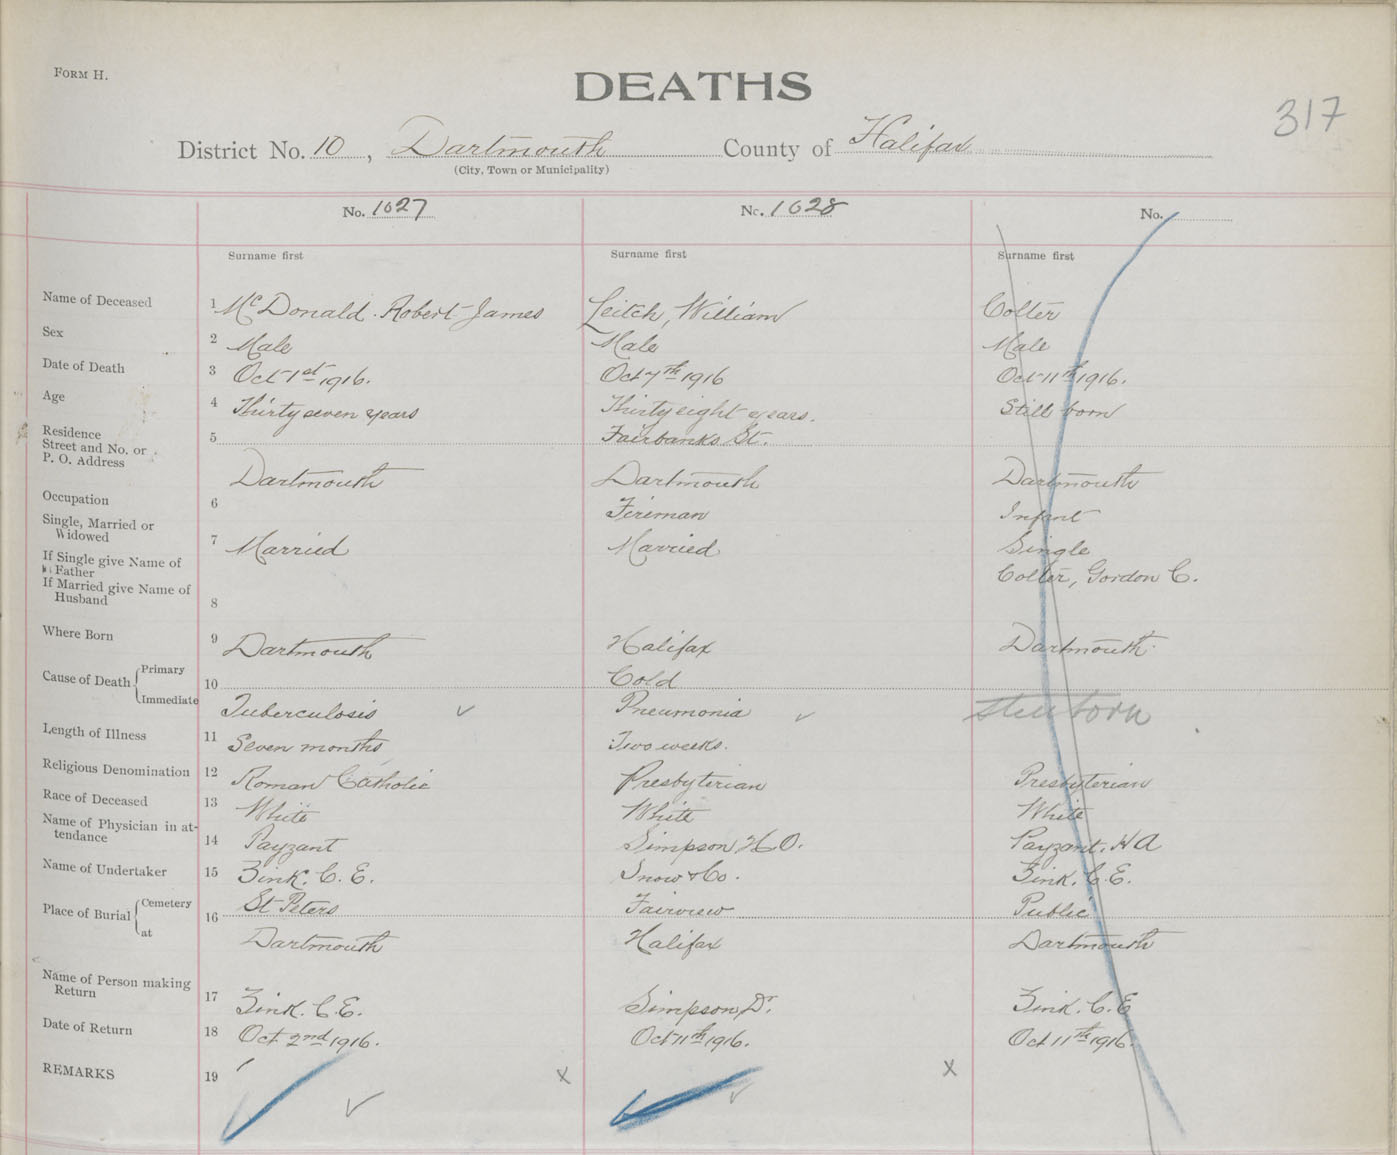 FORM H.
DEATHS
317
District No. 10, Dartmouth County of Halifax
(City, Town or Municipality)
No. 1027 No. 1028 No.
Surname first Surname first Surname first
Name of Deceased 1 McDonald. Robert James Leitch, William Colter
Sex 2 Male Male Male
Date of Death 3 Oct 1st 1916. Oct 7th 1916 Oct 11th 1916.
Age 4 Thirty seven years Thirty eight years. Still born
Residence
Street and No. or 5 Fairbanks St.
P. O. Address
Dartmouth Dartmouth Dartmouth
Occupation 6 Fireman Infant
Single, Married or
Widowed 7 Married Married Single
If Single give Name of
Father Colter, Gordon C.
If Married give Name of
Husband 8
Where Born 9 Dartmouth Halifax Dartmouth
Cause of Death Primary 10 Cold
Immediate Tuberculosis ✓ Pneumonia ✓ Still born
Length of Illness 11 Seven months Two weeks.
Religious Denomination 12 Roman Catholic Presbyterian Presbyterian
Race of Deceased 13 White White White
Name of Physician in at-
tendance 14 Payzant Simpson H O. Payzant. H A
Name of Undertaker 15 Zink. C. E. Snow & Co. Zink. C. E.
Place of Burial Cemetery 16 St Peters Fairview Public
at Dartmouth Halifax Dartmouth
Name of Person making
Return 17 Zink. C. E. Simpson Dr. Zink. C. E
Date of Return 18 Oct 2nd 1916. Oct 11th 1916. Oct 11th 1916.
REMARKS 19 x x
✓ ✓